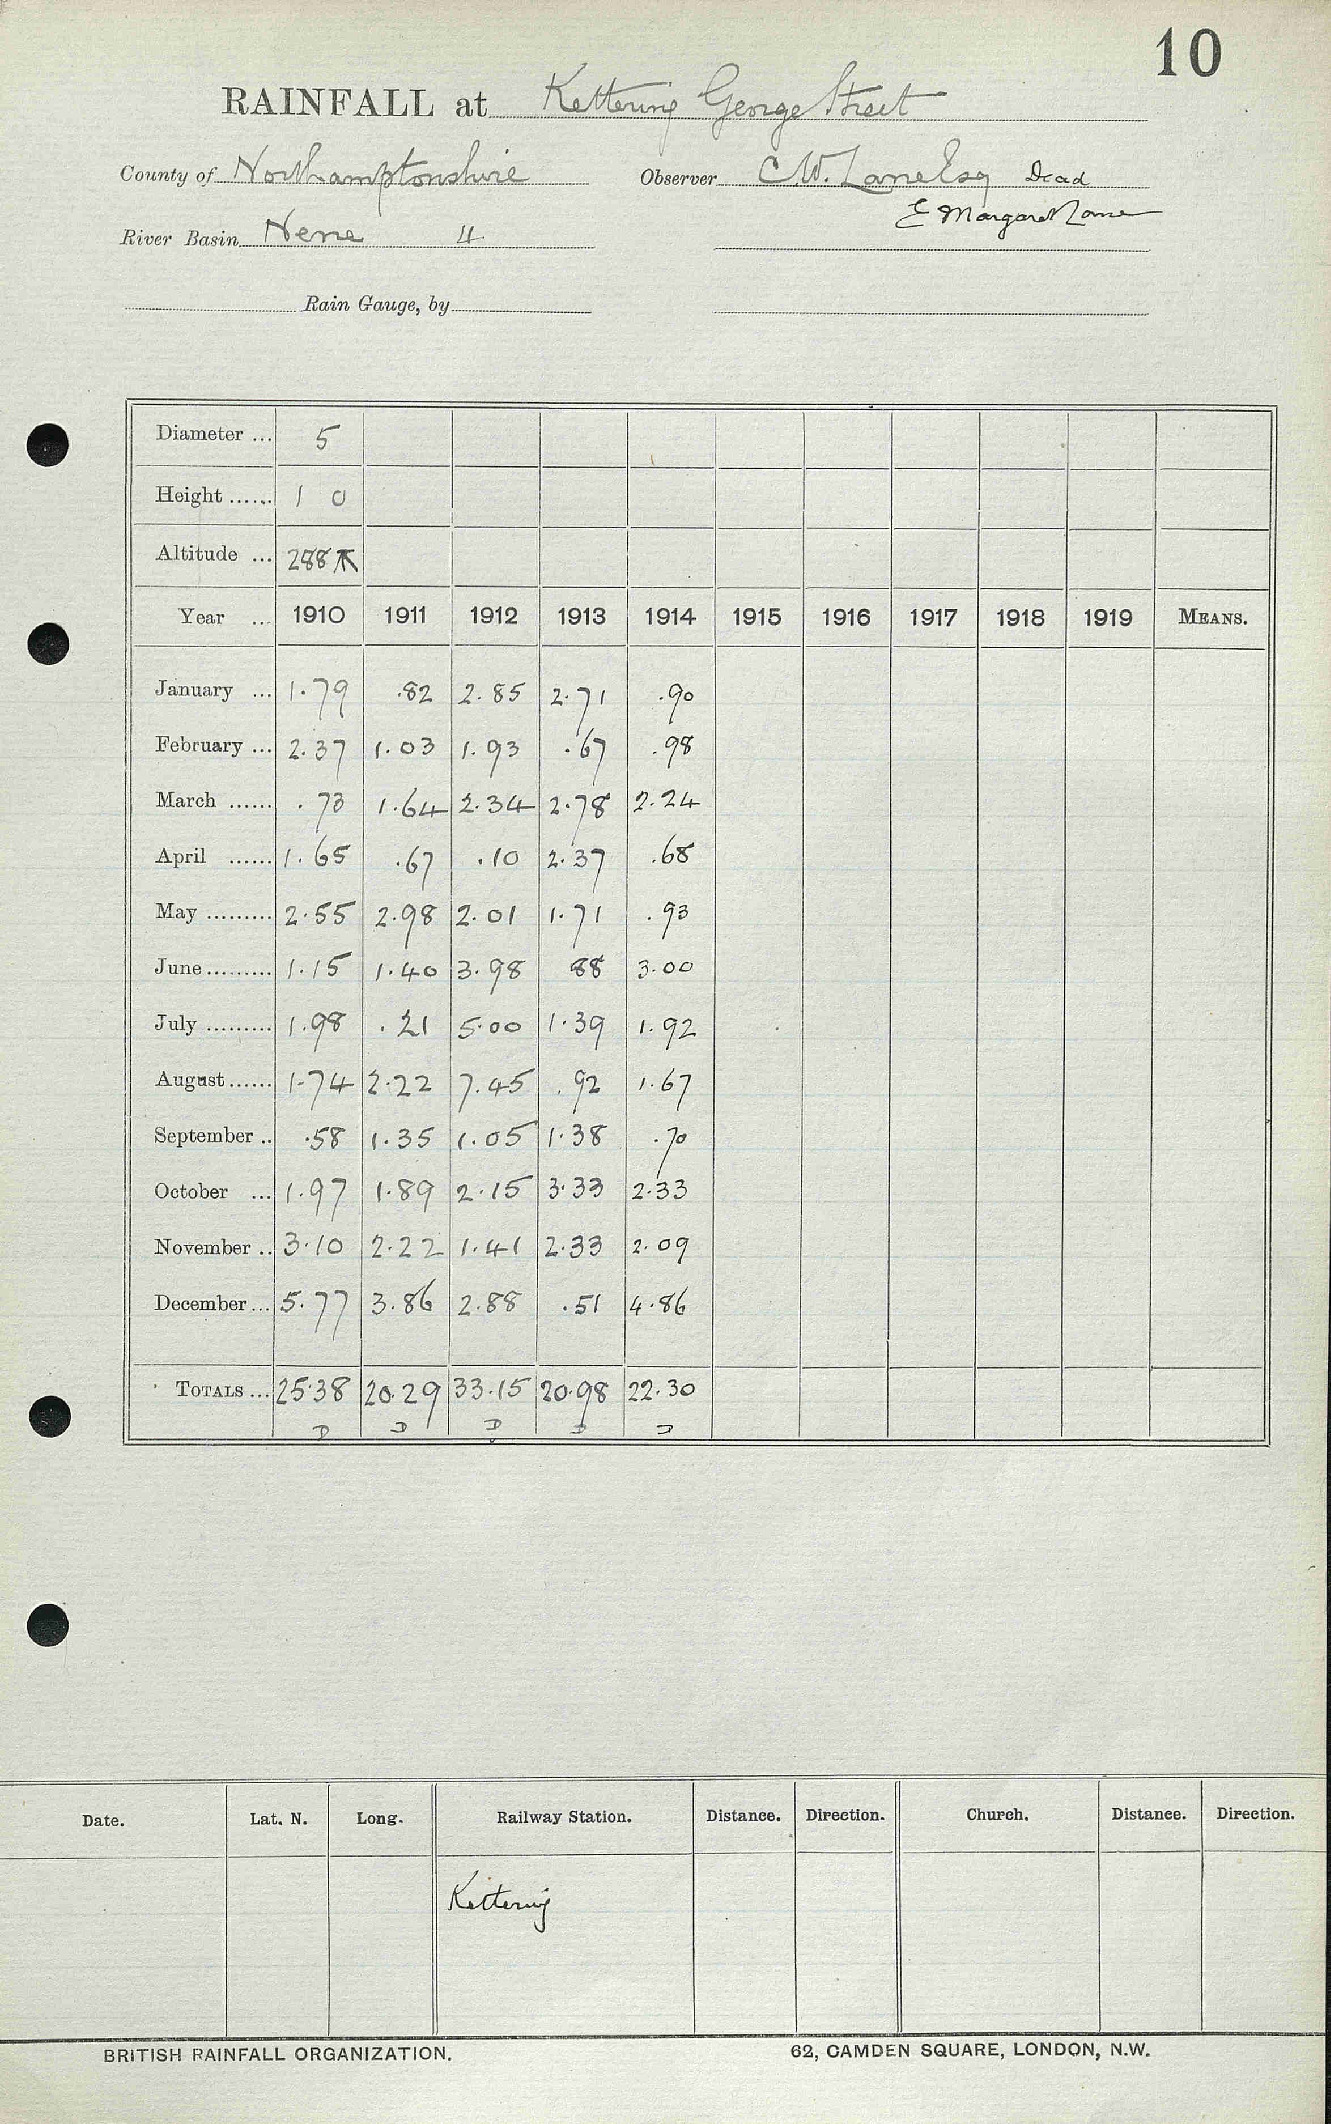 10
RAINFALL at Kettering George Street
County of Northamptonshire Observer C W. Lane Esq Dead
E Margaret Lane
River Basin Nene 4
Rain Gauge, by
Diameter ... 5
Height ...... 1 0
Altitude ... 288
Year ... 1910 1911 1912 1913 1914 1915 1916 1917 1918 1919 MEANS.
January ... 1.79 .82 2.85 2.71 .90
February ... 2.37 1.03 1.93 .67 .98
March ...... .73 1.64 2.34 2.78 2.24
April ...... 1.65 .67 .10 2.37 .68
May ......... 2.55 2.98 2.01 1.71 .93
June ......... 1.15 1.40 3.98 88 3.00
July ......... 1.98 .21 5.00 1.39 1.92
August ...... 1.74 2.22 7.45 .92 1.67
September .. .58 1.35 1.05 1.38 .70
October ... 1.97 1.89 2.15 3.33 2.33
November .. 3.10 2.22 1.41 2.33 2.09
December ... 5.77 3.86 2.88 .51 4.86
TOTALS ... 25.38 20.29 33.15 20.98 22.30
D D D D D
Date. Lat. N. Long. Railway Station. Distance. Direction. Church. Distance. Direction.
Kettering
BRITISH RAINFALL ORGANIZATION. 62, CAMDEN SQUARE, LONDON, N.W.